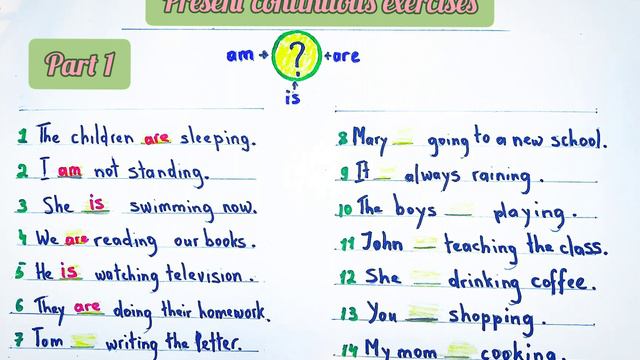 Present continuous exercises
Part 1
am
?
are
is
1 The children are sleeping.
2 I am not standing.
3 She is swimming now.
4 We are reading our books.
5 He is watching television.
6 They are doing their homework.
7 Tom __ writing the letter.
8 Mary __ going to a new school.
9 It __ always raining.
10 The boys __ playing.
11 John __ teaching the class.
12 She __ drinking coffee.
13 You __ shopping.
14 My mom __ cooking.